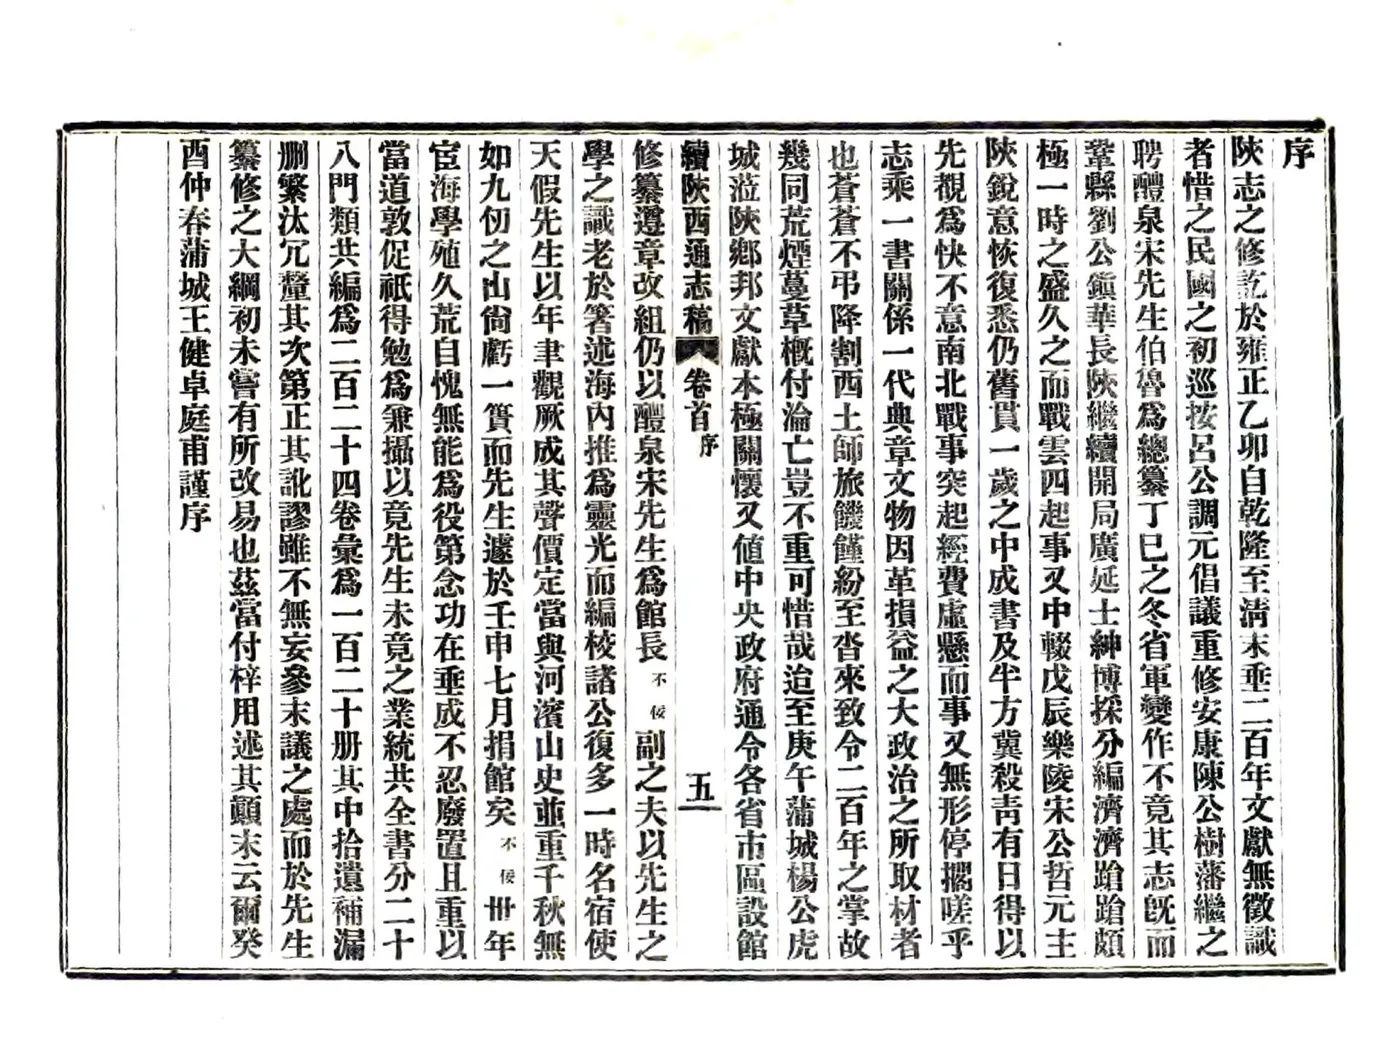 序
陝志之修訖於雍正乙卯自乾隆至淸末垂二百年文獻無徵識
者惜之民國之初巡按呂公調元倡議重修安康陳公樹藩繼之
聘醴泉宋先生伯魯爲總纂丁巳之冬省軍變作不竟其志旣而
鞏縣劉公鎭華長陝繼續開局廣延士紳博採分編濟濟蹌蹌頗
極一時之盛久之而戰雲四起事又中輟戊辰樂陵宋公哲元主
陝銳意恢復悉仍舊貫一歲之中成書及半方冀殺靑有日得以
先覩爲快不意南北戰事突起經費虛懸而事又無形停擱嗟乎
志乘一書關係一代典章文物因革損益之大政治之所取材者
也蒼蒼不弔降割西土師旅饑饉紛至沓來致令二百年之掌故
幾同荒煙蔓草概付淪亡豈不重可惜哉迨至庚午蒲城楊公虎
城涖陝鄉邦文獻本極關懷又値中央政府通令各省市區設館
續陝西通志稿 卷首 序 五
修纂遵章改組仍以醴泉宋先生爲館長不佞副之夫以先生之
學之識老於箸述海內推爲靈光而編校諸公復多一時名宿使
天假先生以年聿觀厥成其聲價定當與河濱山史並重千秋無
如九仞之山尙虧一簣而先生遽於壬申七月捐館矣不佞卅年
宦海學殖久荒自愧無能爲役第念功在垂成不忍廢置且重以
當道敦促祇得勉爲兼攝以竟先生未竟之業統共全書分二十
八門類共編爲二百二十四卷彙爲一百二十册其中拾遺補漏
刪繁汰冗釐其次第正其訛謬雖不無妄參末議之處而於先生
纂修之大綱初未嘗有所改易也茲當付梓用述其顚末云爾癸
酉仲春蒲城王健卓庭甫謹序